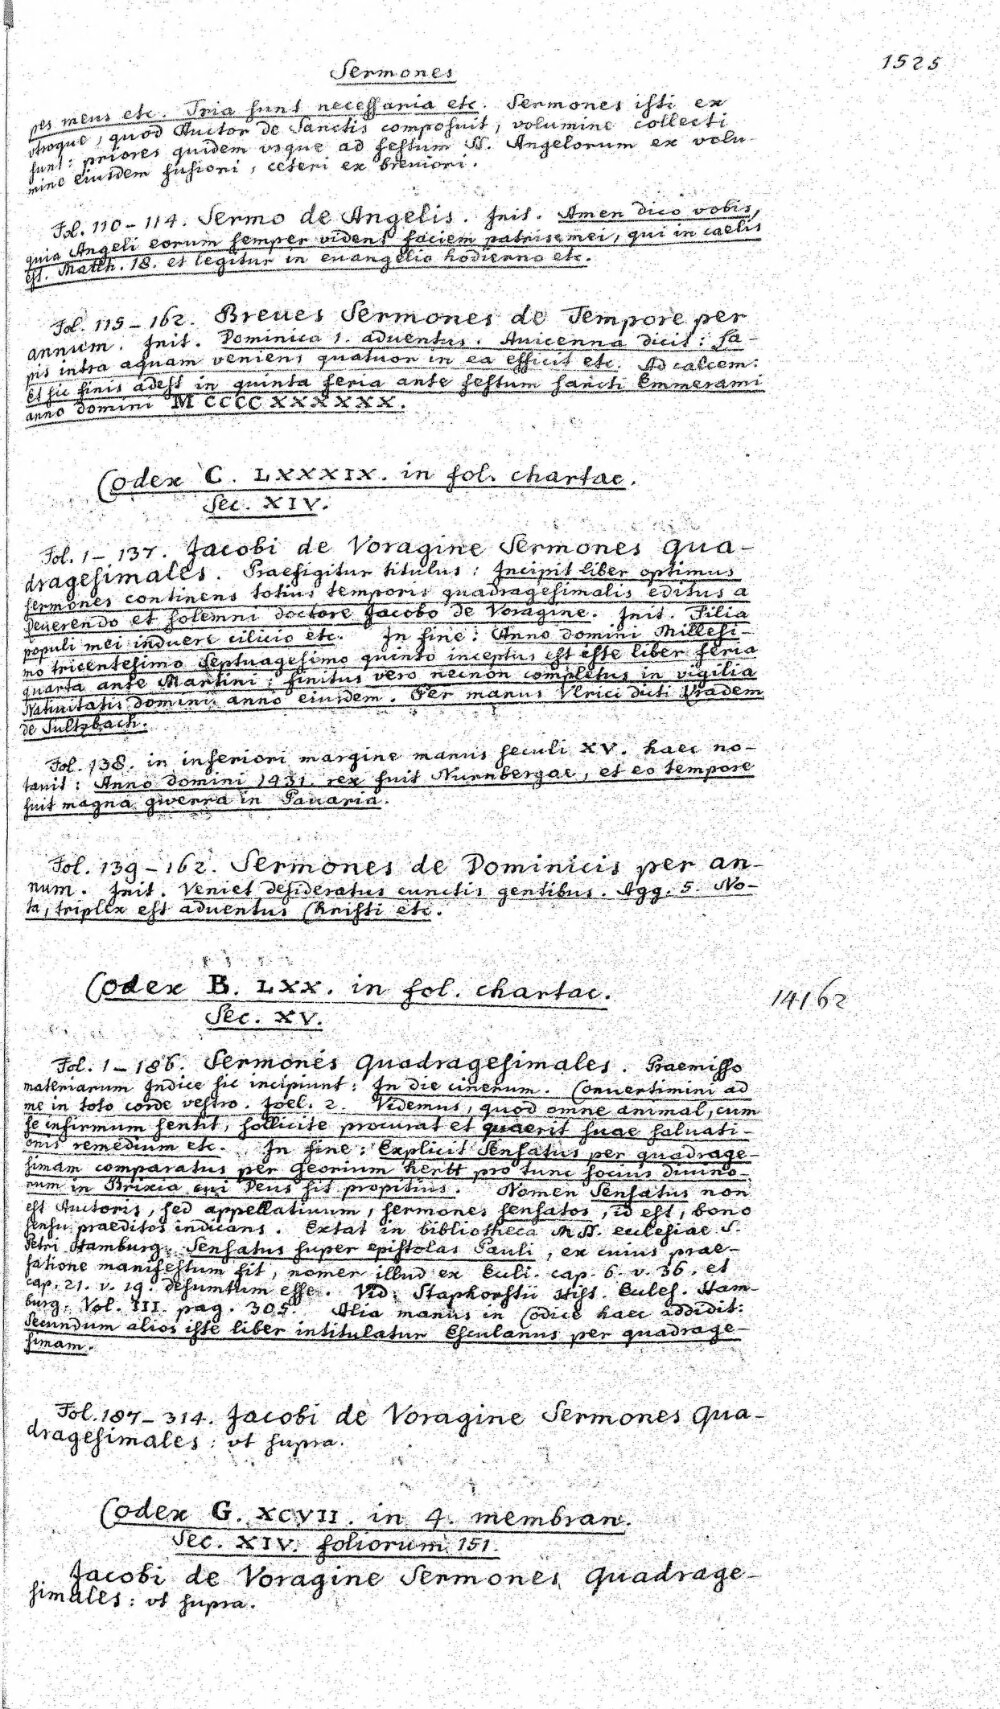 Sermones
1525
pes meus etc. Tria sunt necessaria etc. Sermones isti ex
utroque, quod Auctor de Sanctis composuit, volumine collecti
sunt: priores quidem vsque ad festum SS. Angelorum ex volu
mine eiusdem fusiori, ceteri ex breuiori.
Fol. 110-114. Sermo de Angelis. Init. Amen dico vobis,
quia Angeli eorum semper vident faciem patris mei, qui in caelis
est. Matth. 18. et legitur in euangelio hodierno etc.
Fol. 115-162. Breues Sermones de Tempore per
annum. Init. Dominica 1. aduentus. Auicenna dicit: La-
pis intra aquam veniens quatuor in ea efficit etc. Ad calcem:
Et sic finis adest in quinta feria ante festum sancti Emmerami
anno domini M CCCC XXXXXX.
Codex C. LXXXIX. in fol. chartac.
Sec. XIV.
Fol. 1-137. Jacobi de Voragine Sermones Qua-
dragesimales. Praefigitur titulus: Incipit liber optimus
sermones continens totius temporis quadragesimalis editus a
Reuerendo et solemni doctore Jacobo de Voragine. Init. Filia
populi mei induere cilicio etc. In fine: Anno domini Millesi-
mo tricentesimo septuagesimo quinto inceptus est iste liber feria
quarta ante Martini: finitus vero necnon completus in vigilia
Natiuitatis domini anno eiusdem. Per manus Vlrici dicti Pradem
de Sultzbach.
Fol. 138. in inferiori margine manus seculi XV. haec no-
tauit: Anno domini 1431. rex fuit Nurnbergae, et eo tempore
fuit magna gwerra in Pauaria.
Fol. 139-162. Sermones de Dominicis per an-
num. Init. Veniet desideratus cunctis gentibus. Agg. 5. No-
ta, triplex est aduentus Christi etc.
Codex B. LXX. in fol. chartac.
14162
Sec. XV.
Fol. 1-186. Sermones Quadragesimales. Praemisso
materiarum Indice sic incipiunt: In die cinerum. Conuertimini ad
me in toto corde vestro. Joel. 2. Videmus, quod omne animal, cum
se infirmum sentit, sollicite procurat et quaerit suae saluati-
onis remedium etc. In fine: Explicit Sensatus per quadrage-
simam comparatus per Georium Hertt pro tunc socius diuino-
rum in Brixia cui Deus sit propitius. Nomen Sensatus non
est Auctoris, sed appellatiuum, sermones sensatos, id est, bono
sensu praeditos indicans. Extat in bibliotheca MSS. ecclesiae S.
Petri Hamburg. Sensatus super epistolas Pauli, ex cuius prae-
fatione manifestum fit, nomen illud ex Eccli. cap. 6. v. 36. et
cap. 21. v. 19. desumtum esse. Vid. Staphorstii Hist. Eccles. Ham-
burg. Vol. III. pag. 305. Alia manus in Codice haec addidit:
Secundum alios iste liber intitulatur Esculanus per quadrage-
simam.
Fol. 187-314. Jacobi de Voragine Sermones Qua-
dragesimales: vt supra.
Codex G. XCVII. in 4. membran.
Sec. XIV. foliorum 151.
Jacobi de Voragine Sermones Quadrage-
simales: vt supra.